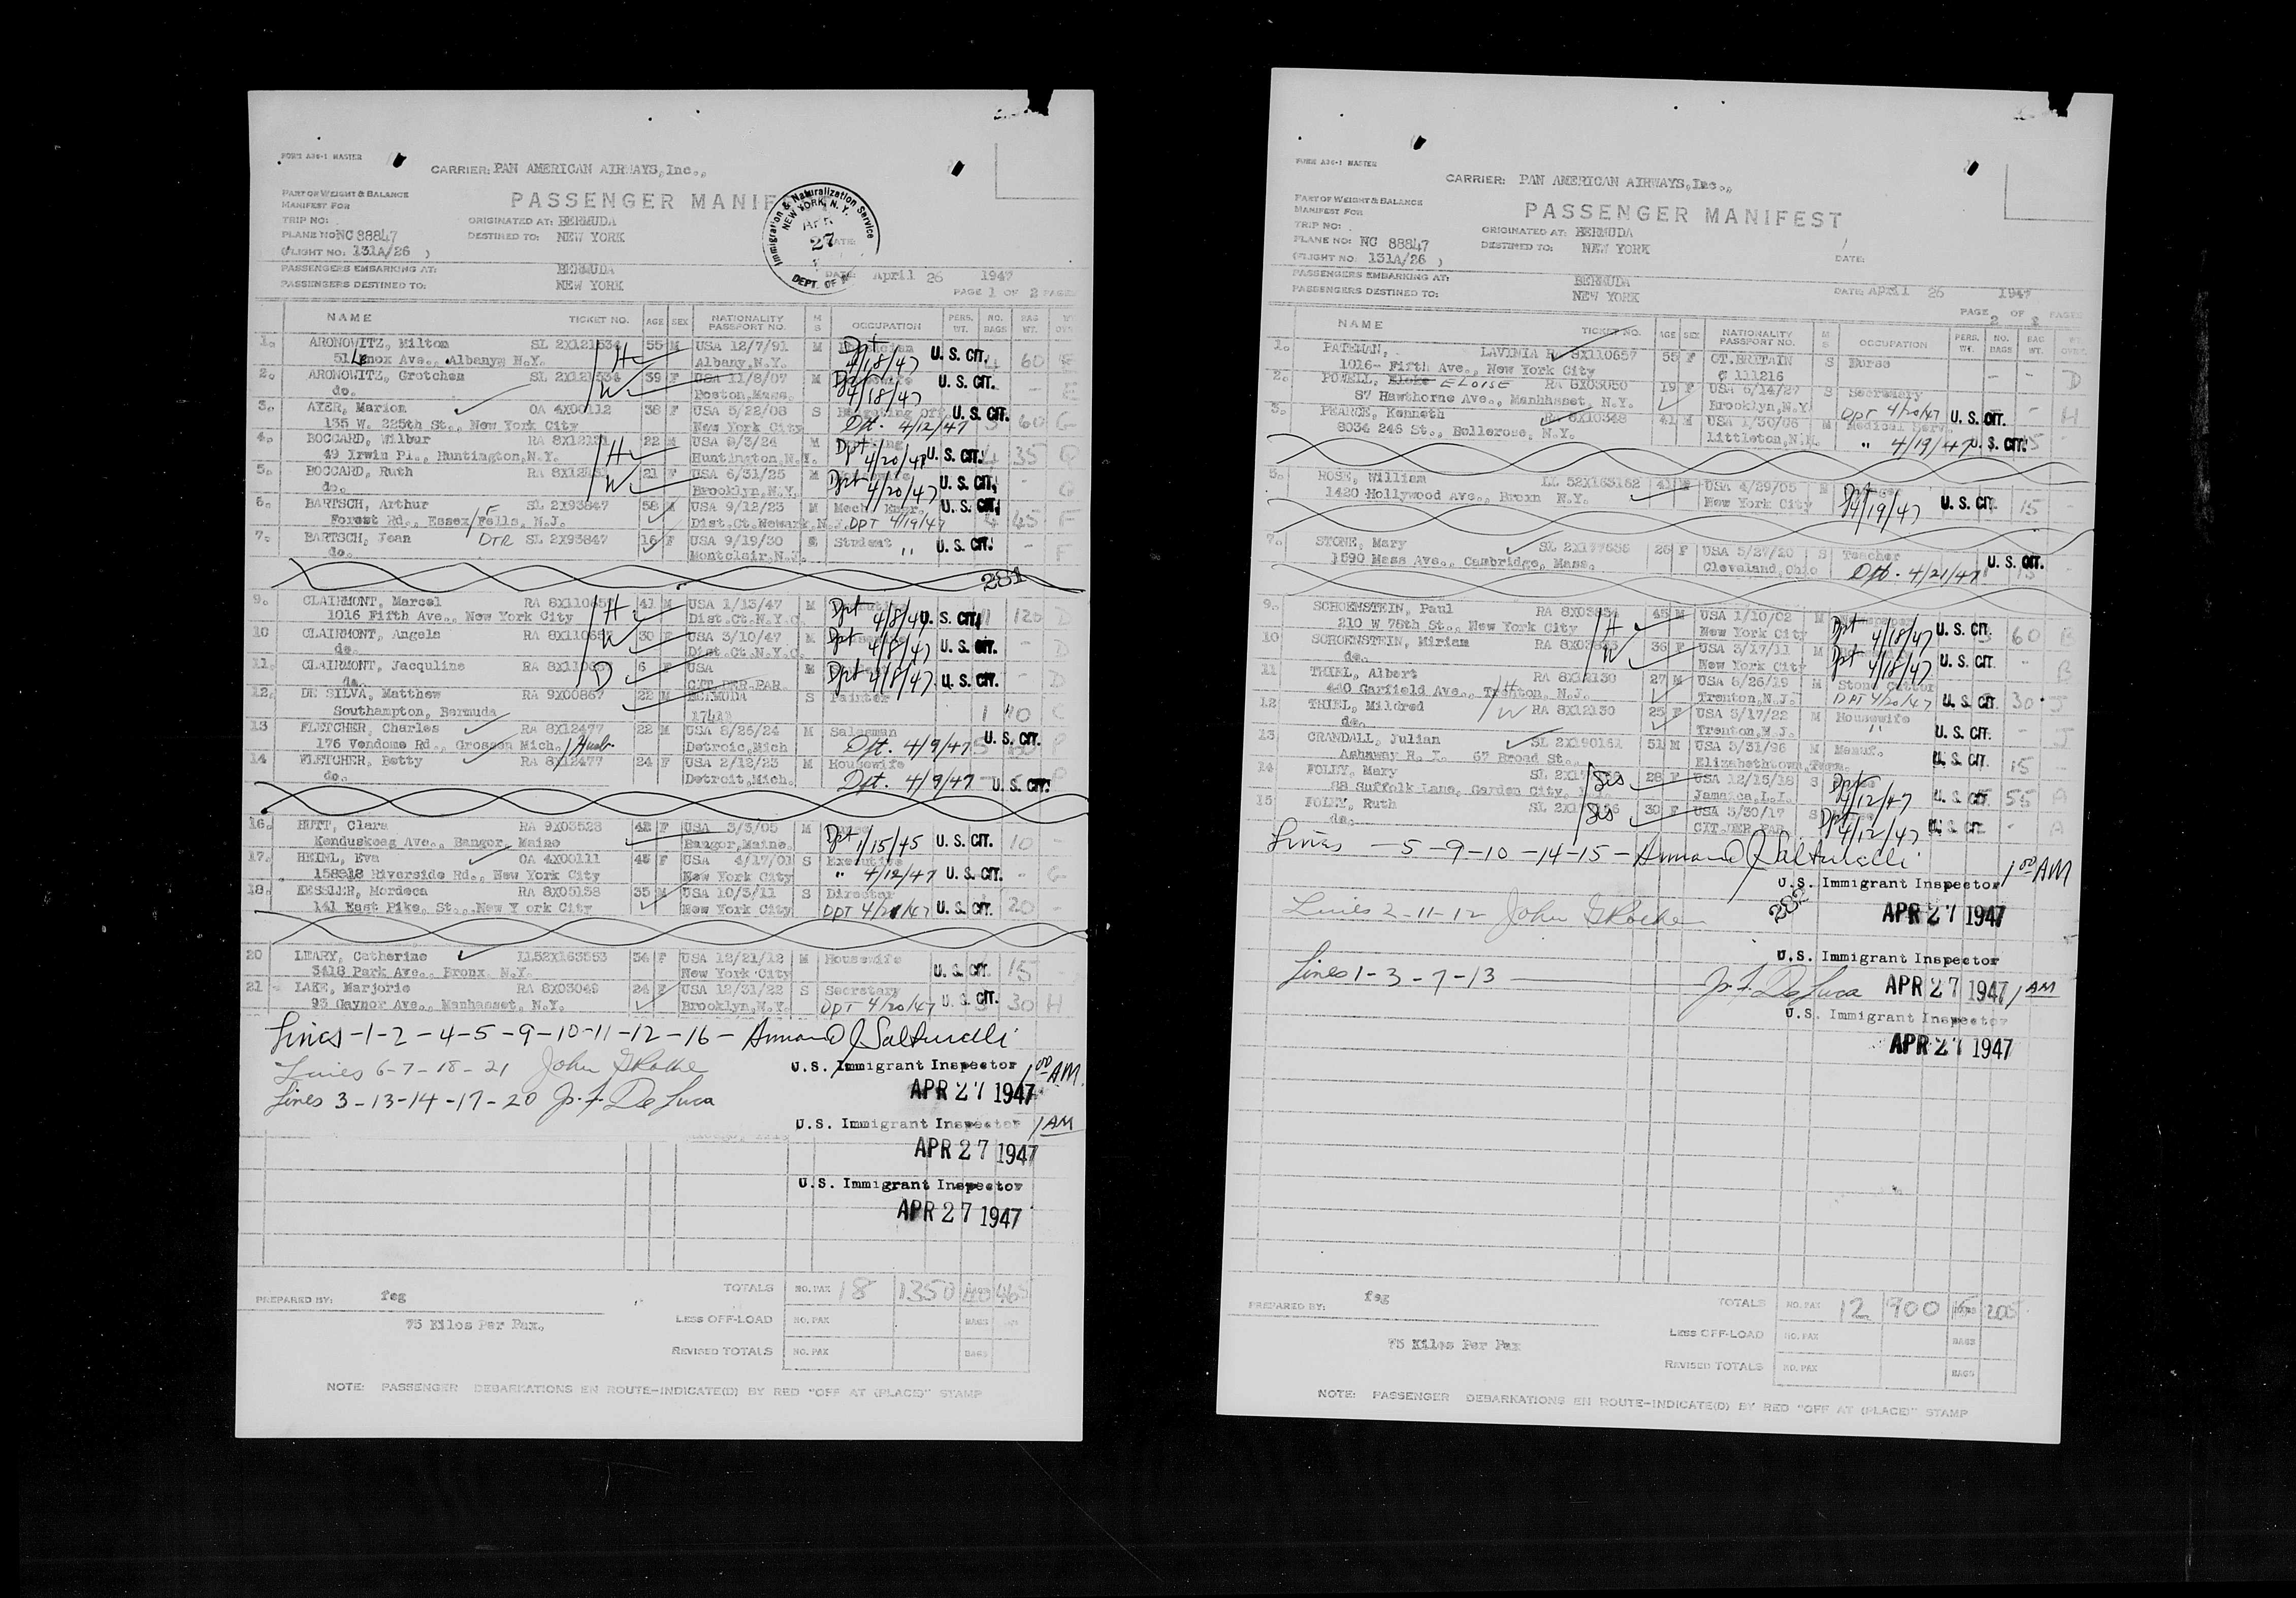 FORM A36-1 MASTER
CARRIER: PAN AMERICAN AIRWAYS, Inc.,
PART OF WEIGHT & BALANCE
MANIFEST FOR
PASSENGER MANIF
TRIP NO:
ORIGINATED AT: BERMUDA
PLANE NO: NC 88847
DESTINED TO: NEW YORK
(FLIGHT NO: 131A/26 )
Immigration & Naturalization Service
NEW YORK, N. Y.
APR
27
DEPT. OF
PASSENGERS EMBARKING AT: BERMUDA
DATE: April 26 1947
PASSENGERS DESTINED TO: NEW YORK
PAGE 1 OF 2 PAGES
NAME TICKET NO. AGE SEX NATIONALITY PASSPORT NO. M S OCCUPATION PERS. WT. NO. BAGS BAG WT.
1. ARONOWITZ, Milton SL 2X121534 H 55 M USA 12/7/91 M Dpt U. S. CIT.
51 Lenox Ave., Albany, N.Y. Albany, N.Y. 4/18/47 4 60 E
2. ARONOWITZ, Gretchen SL 2X121534 W 39 F USA 11/8/07 M Dpt U. S. CIT. - E
do. Boston, Mass. 4/18/47
3. AYER, Marion OA 4X00112 38 F USA 5/22/08 S U. S. CIT.
135 W. 225th St., New York City New York City Dpt. 4/12/47 60 G
4. BOCCARD, Wilbur RA 8X12131 H 22 M USA 9/3/24 M Dpt
49 Irwin Pl., Huntington, N.Y. Huntington, N.Y. 4/20/47 U. S. CIT. 35
5. BOCCARD, Ruth W 21 F USA 6/31/25 M Dpt
do. Brooklyn, N.Y. 4/20/47 U. S. CIT. -
6. BARTSCH, Arthur SL 2X93847 58 M USA 9/12/23 M Mech. Engr. U. S. CIT.
Forest Rd., Essex Fells, N.J. Dist. Ct. Newark, N.J. DPT 4/19/47 4 45 F
7. BARTSCH, Jean DTR SL 2X93847 16 F USA 9/19/30 Student " U. S. CIT. - F
do. Montclair, N.J.
281
9. CLAIRMONT, Marcel H 41 M USA 1/13/47 M Dpt
1016 Fifth Ave., New York City Dist. Ct. N.Y.C. 4/8/47 U. S. CIT. 11 120 D
10 CLAIRMONT, Angela RA 8X110657 W 30 F USA 3/10/47 M Dpt
do. Dist. Ct. N.Y.C. 4/8/47 - D
11. CLAIRMONT, Jacquline D 6 F USA Dpt 4/8/47 U. S. CIT. - D
do. CIT. PER PAR.
12. DE SILVA, Matthew RA 9X00867 22 M BERMUDA S Painter
Southampton, Bermuda 1 10 C
13 FLETCHER, Charles RA 8X12477 22 M USA 8/25/24 M Salesman U. S. CIT.
176 Vendome Rd., Grosson Mich. Husb Detroic, Mich Dpt. 4/9/47
14 FLETCHER, Betty RA 8X12477 24 F USA 2/12/23 M Housewife
do. Detroit, Mich. Dpt. 4/9/47 U. S. CIT.
16. HUTT, Clara RA 9X03528 42 F USA 3/3/05 M Dpt 1/15/45 U. S. CIT. 10 -
Kenduskeag Ave., Bangor, Maine Bangor, Maine.
17. HEINL, Eva OA 4X00111 45 F USA 4/17/01 S Executive
158918 Riverside Rd., New York City New York City " 4/12/47 U. S. CIT. - G
18. KESSLER, Mordeca RA 8X05138 35 M USA 10/3/11 S Director
141 East Pike, St., New Y ork City New York City DPT 4/21/47 U. S. CIT. 20 -
20 LEARY, Catherine LL52X163553 34 F USA 12/21/12 M Housewife
3418 Park Ave., Bronx, N.Y. New York City U. S. CIT. 15 -
21 LAKE, Marjorie RA 8X03049 24 F USA 12/31/22 S Secretary
93 Gaynor Ave., Manhasset, N.Y. Brooklyn, N.Y. DPT 4/20/47 U. S. CIT. 30 H
Lines -1-2-4-5-9-10-11-12-16-
Lines 6-7-18-21 John
U.S. Immigrant Inspector 1 00 AM
APR 27 1947
Lines 3-13-14-17-20 De Luca
U.S. Immigrant Inspector 1 AM
APR 27 1947
U.S. Immigrant Inspector
APR 27 1947
TOTALS NO. PAX 18 1350 40 465
PREPARED BY: feg
LESS OFF-LOAD NO. PAX BAGS
75 Kilos Per Pax.
REVISED TOTALS NO. PAX BAGS
NOTE: PASSENGER DEBARKATIONS EN ROUTE-INDICATE(D) BY RED "OFF AT (PLACE)" STAMP
FORM A36-1 MASTER
CARRIER: PAN AMERICAN AIRWAYS, Inc.,
PART OF WEIGHT & BALANCE
MANIFEST FOR
PASSENGER MANIFEST
TRIP NO:
ORIGINATED AT: BERMUDA
PLANE NO: NC 88847
DESTINED TO: NEW YORK
DATE:
(FLIGHT NO: 131A/26 )
PASSENGERS EMBARKING AT: BERMUDA
DATE: April 26 1947
PASSENGERS DESTINED TO: NEW YORK
PAGE 2 OF 2 PAGES
NAME TICKET NO. AGE SEX NATIONALITY PASSPORT NO. M S OCCUPATION PERS. WT. NO. BAGS BAG WT.
1. PATEMAN, LAVINIA RA 8X110657 55 F GT. BRITAIN S Nurse
1016- Fifth Ave., New York City C 111216 - - D
2. POWELL, ELOISE RA 8X03050 19 F USA 6/14/27 S Secretary
87 Hawthorne Ave., Manhhasset, N.Y. Brooklyn, N.Y. DPT 4/20/47 U. S. CIT. - H
3. PEARCE, Kenneth RA 8X10348 41 M USA 1/30/06 M Medical Serv.
8034 246 St., Bellerose, N.Y. Littleton, N.H. " 4/19/47 U. S. CIT. 15 -
5. ROSE, William LL 52X163162 41 M USA 4/29/05 M Dpt
1420 Hollywood Ave., Bronx N.Y. New York City 4/19/47 U. S. CIT. 15 -
7. STONE, Mary SL 2X177658 26 F USA 5/27/20 S Teacher
1590 Mass Ave., Cambridge, Mass. Cleveland, Ohio Dpt. 4/21/47 U. S. CIT. 15
9. SCHOENSTEIN, Paul H 45 M USA 1/10/02 M Dpt
210 W 78th St., New York City New York City 4/18/47 U. S. CIT. 60 B
10 SCHOENSTEIN, Miriam W 36 F USA 3/17/11 M Dpt
do. New York City 4/18/47 U. S. CIT. - B
11 THIEL, Albert H RA 8X12130 27 M USA 8/26/19 M Stone Cutter
440 Garfield Ave., Trenton, N.J. Trenton, N.J. DPT 4/20/47 U. S. CIT. 30 J
12 THIEL, Mildred W RA 8X12130 25 F USA 5/17/22 M Housewife
do. Trenton, N.J. " U. S. CIT. - J
13. CRANDALL, Julian SL 2X190161 51 M USA 3/31/96 M Manuf.
Ashaway R. I. 67 Broad St., Elizabethtown, Tenn. U. S. CIT. 15
14 FOLEY, Mary Sis 28 F USA 12/15/18 S Dpt
88 Suffolk Lane, Garden City, Jamaica, L.I. 4/12/47 U. S. CIT. 55 A
15 FOLEY, Ruth Sis 30 F USA 3/30/17 S Dpt
do. CIT. PER PAR. 4/12/47 U. S. CIT - A
Lines -5-9-10-14-15-
U.S. Immigrant Inspector 1 00 AM
282
APR 27 1947
Lines 2-11-12 John
U.S. Immigrant Inspector
Lines 1-3-7-13 De Luca APR 27 1947 1 AM
U.S. Immigrant Inspector
APR 27 1947
TOTALS NO. PAX 12 900 205
PREPARED BY: feg
LESS OFF-LOAD NO. PAX BAGS
75 Kilos Per Pax
REVISED TOTALS NO. PAX BAGS
NOTE: PASSENGER DEBARKATIONS EN ROUTE-INDICATE(D) BY RED "OFF AT (PLACE)" STAMP